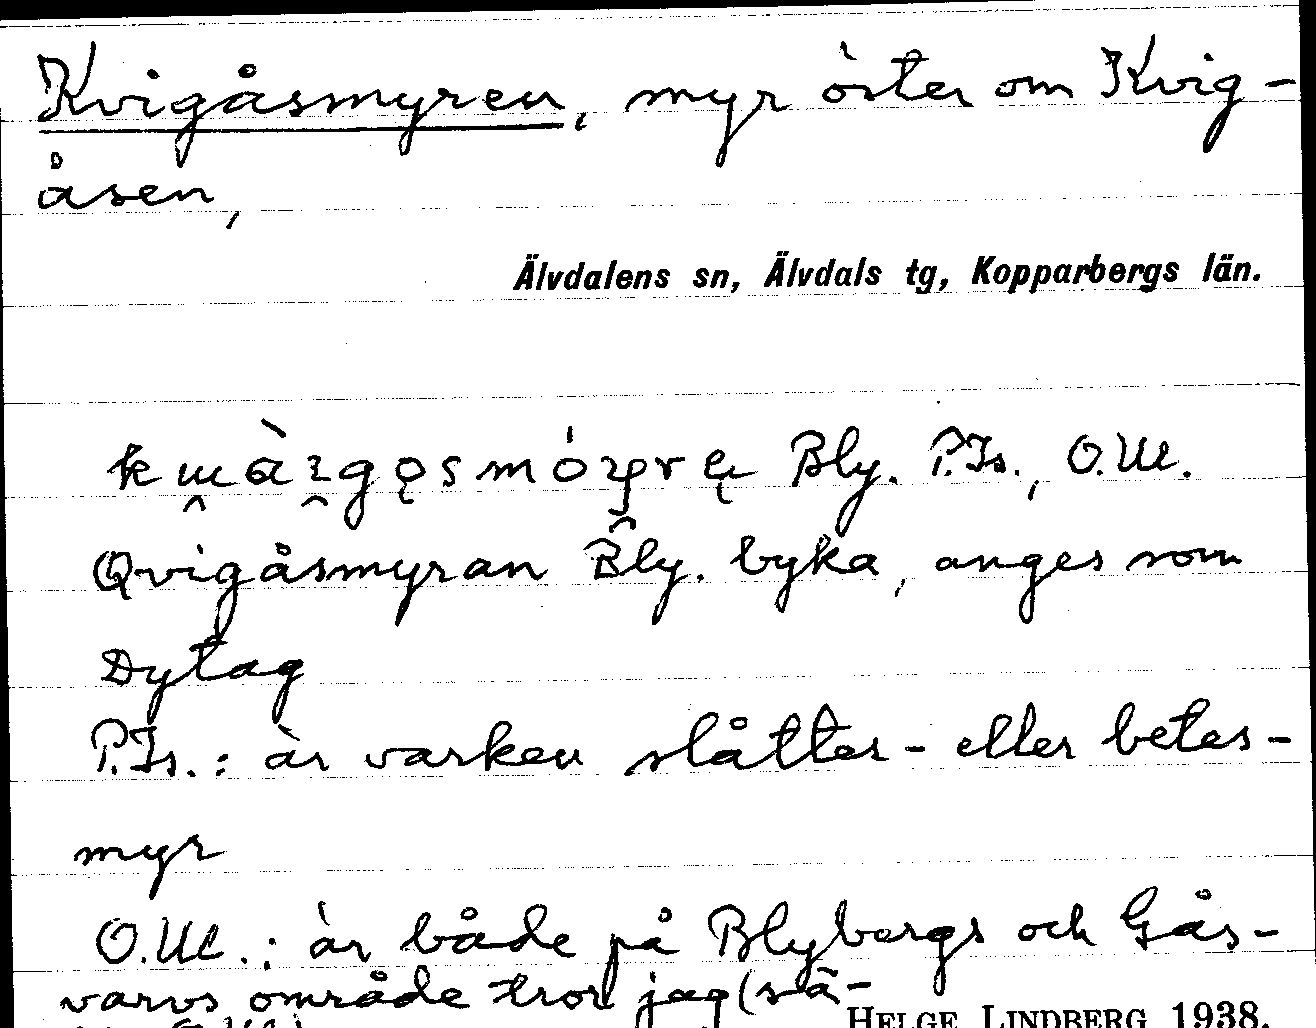 Kvigåsmyren, myr öster om Kvig-
åsen,
Älvdalens sn, Älvdals tg, Kopparbergs län.
Bly. P.Js., O.M.
Qvigåsmyran Bly. byka, anges som
Dytag
P.Js.: är varken slåtter- eller betes-
myr
O.M.: är både på Blybergs och Gås-
varvs område tror jag (sä-
HELGE LINDBERG 1938.